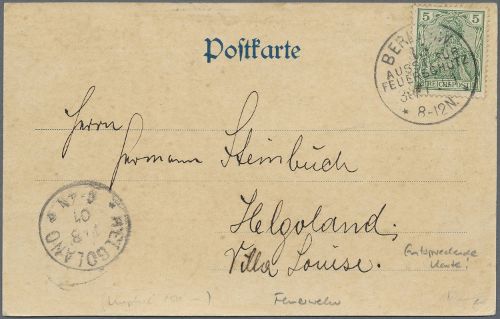 Postkarte
5 5
REICHSPOST
BERLIN
AUSST. FÜR
FEUERSCHUTZ
8-12N.
Herrn
Hermann Steinbuch
Helgoland,
Villa Louise.
HELGOLAND
01
6-7N
Entsprechende
Karte!
Feuerwehr